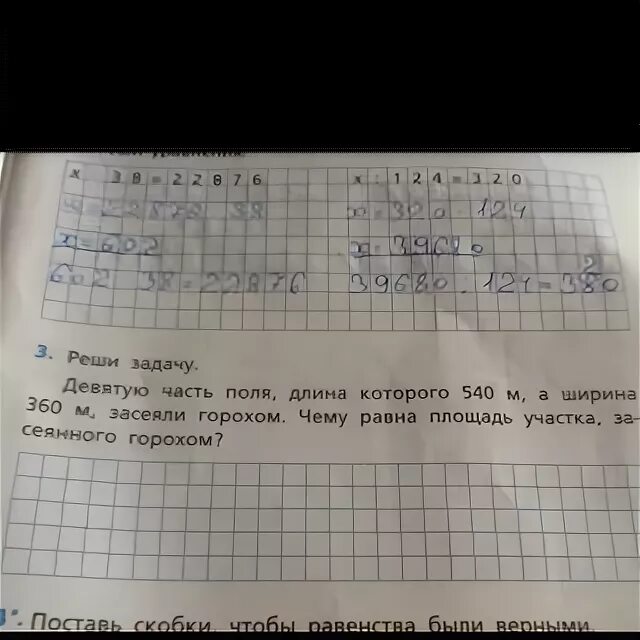 x 38=22876
x:124=320
x=22876 38
x=320 124
x=602
x=39680
602 38=22876
39680:124=320
3. Реши задачу.
Девятую часть поля, длина которого 540 м, а ширина
360 м, засеяли горохом. Чему равна площадь участка, за-
сеянного горохом?
Поставь скобки, чтобы равенства были верными.